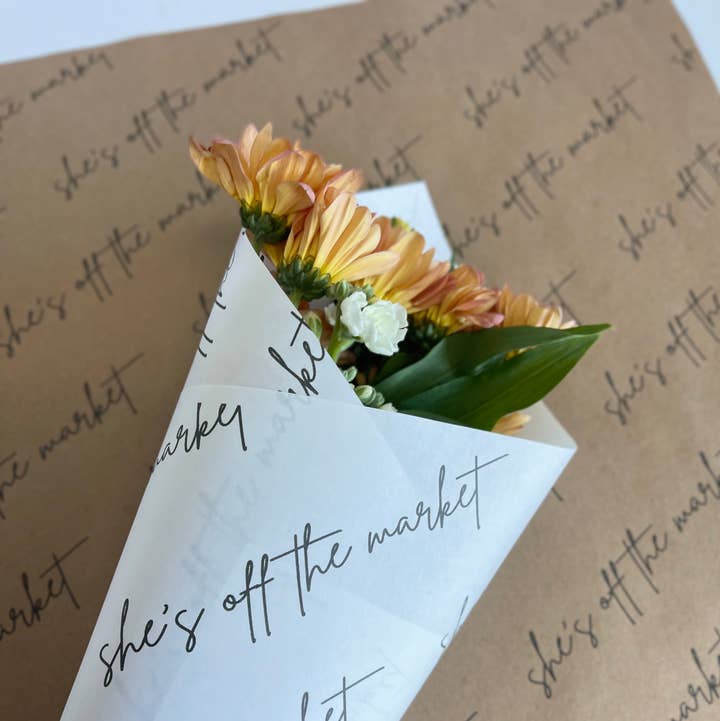 market
she's off the market
she's off the market
she's off
market
she's off the market
she's off the market
she's
she's off
the market
market
market
she's off the market
she's off the market
market
the